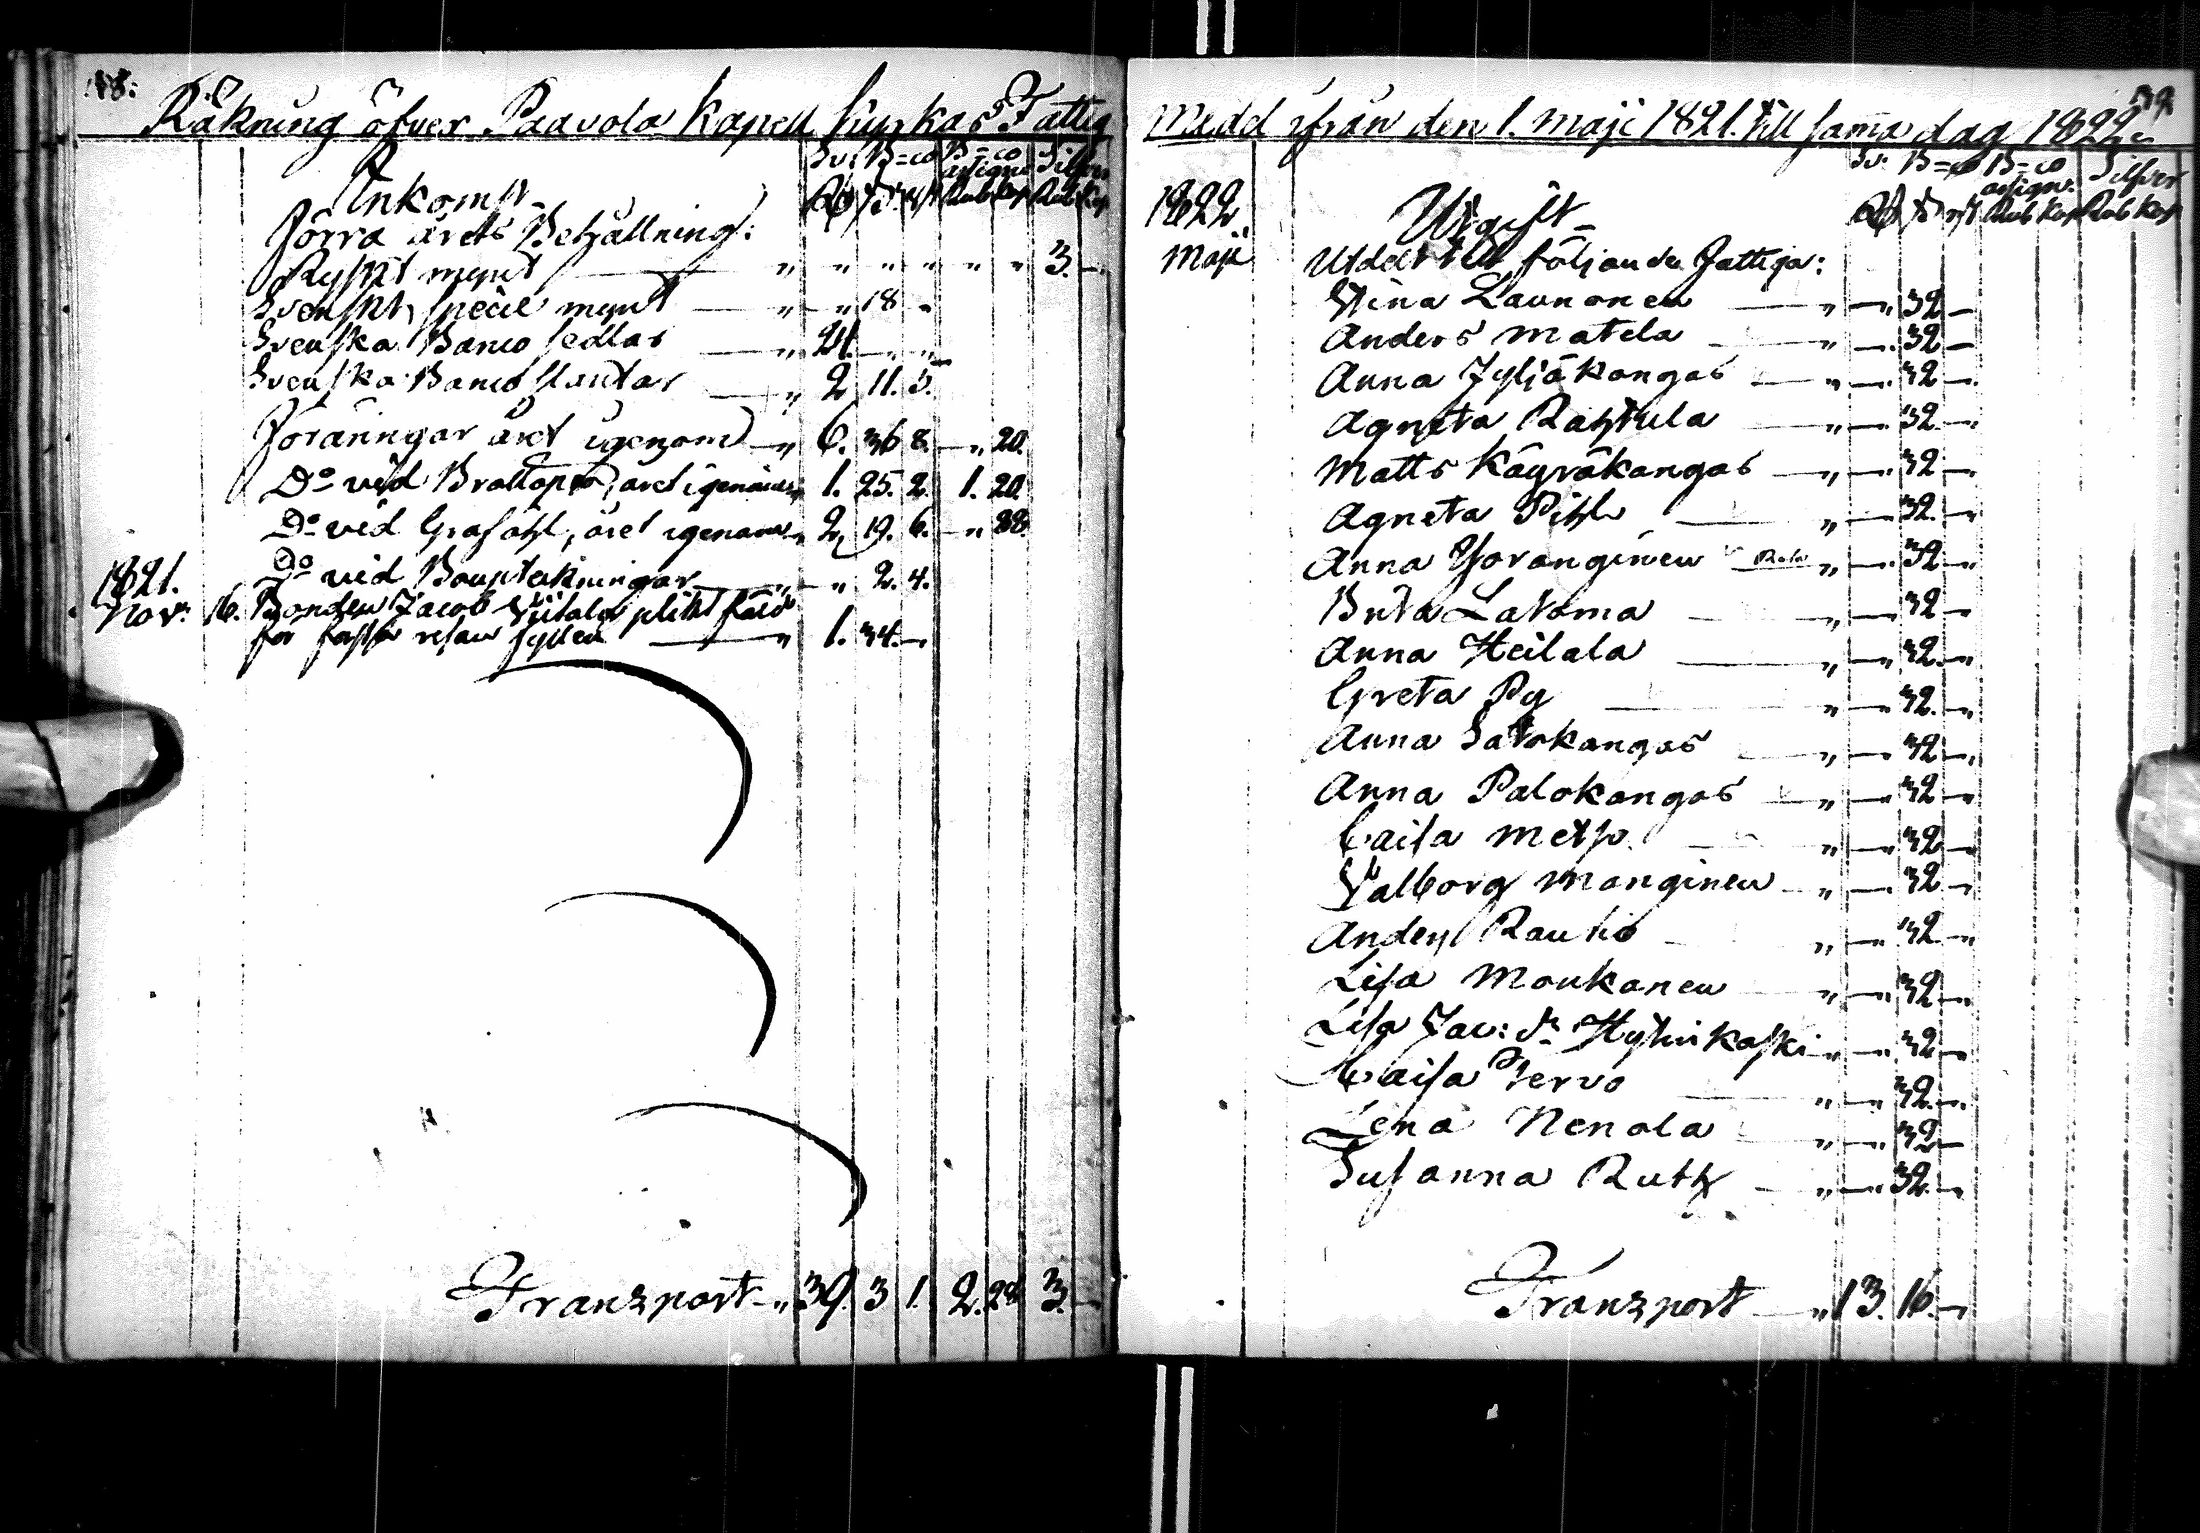 Räkning öfver Paavola Kapell kyrkas Fattig
Sv: B=co B=co Silfver
assign:
Rd ß rst Rub Kop Rub Kop
Inkomst
Förra årets Behållning:
Ryskt mynt — " " " " " " 3. —
Svenskt specie mynt — " — " 18 "
Svenska Banco sedlar — " 24. — " "
Svenska Banco slantar — " 2 11. 5.
Föräringar året igenom — " 6. 36 8. — " 20.
Do vid Brottöpen, året igenom " 1. 25. 2. 1. 20
Do vid Grafööhl, året igenom " 2. 19. 6. — " 88.
Do vid Bouptekningar — " — " 2. 4.
1821.
Nov: 16. Bonden Jacob plikt
för första resan fylleri — " 1. 34. —
Transport — " 39. 3 1. 2. 28 3. —
Medel ifrån den 1. Maji 1821. till samma dag 1822.
Sv: B=co B=co Silfver
assign:
Rd ß rst Rub Kop Rub Kop
1822 Utgift
Maji Utdelt till följande Fattiga:
Stina Launonen — " — " 32 —
Anders Matela — " — " 32 —
Anna Jyljäkangas — " — " 32 —
Agneta Rahtula — " — " 32 —
Matts Käyräkangas — " — " 32 —
Agneta Pihl — " — " 32 —
Anna " — " 32 —
Brita Latoma — " — " 32 —
Anna Heilala — " — " 32 —
Greta Py — " — " 32 —
Anna Satokangas — " — " 32 —
Anna Palokangas — " — " 32 —
Caisa Metso — " — " 32 —
Valborg Manginen — " — " 32 —
Anders Rautio — " — " 32 —
Lisa Moukanen — " — " 32 —
Lisa Jac: dr " — " 32 —
Caisa Tervo — " — " 32 —
Lena Nenola — " — " 32 —
Susanna Ruth — " — " 32 —
Transport — " 13. 16. —